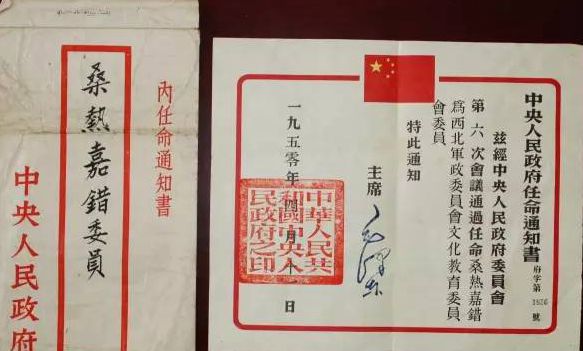 內任命通知書
桑熱嘉錯委員
中央人民政府
中央人民政府任命通知書
府字第1826號
茲經中央人民政府委員會
第六次會議通過任命桑熱嘉錯
為西北軍政委員會文化教育委員
會委員
特此通知
主席
毛澤東
一九五零年四月十 日
中華人民共
和國中央人
民政府之印